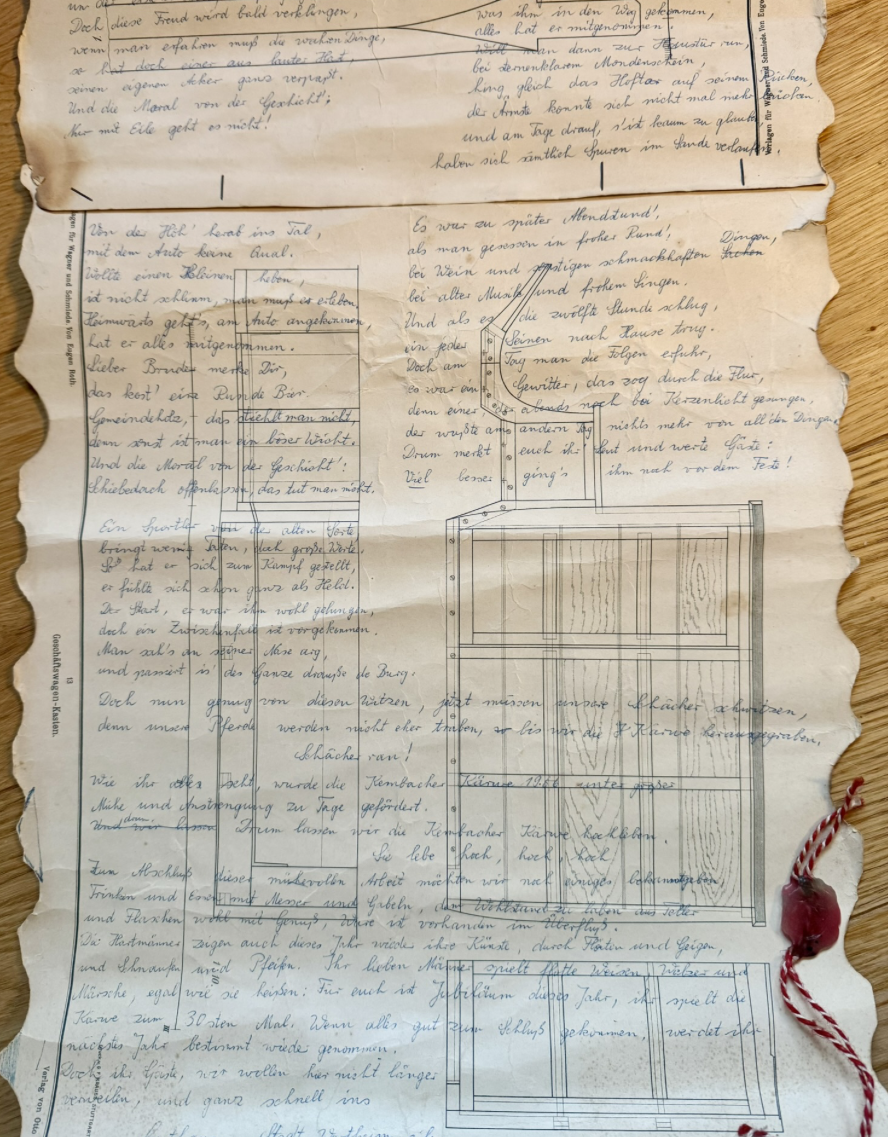 Doch diese Freud wird bald verklingen,
wenn man erfahren muß die wahren Dinge,
so hat doch einer aus lauter Hast,
seinen eigenen Acker ganz verpaßt.
Und die Moral von der Geschicht':
Nur mit Eile geht es nicht!
was ihm in den Weg gekommen,
alles hat er mitgenommen.
man dann zur Haustür rein,
bei sternenklarem Mondenschein,
hing gleich das Hoftor auf seinem Rücken,
der Ärmste konnte sich nicht mal mehr bücken.
und am Tage drauf, s'ist kaum zu glauben
haben sich sämtlich Spuren im Sande verlaufen.
Vorlagen für Wagner und Schmiede Von Eugen
Von der Höh' herab ins Tal,
mit dem Auto keine Qual.
Wollte einen kleinen heben,
ist nicht schlimm, man muß es erleben.
Heimwärts geht's, am Auto angekommen,
hat er alles mitgenommen.
Lieber Bruder merke Dir,
das kost' eine Runde Bier.
Gemeindeholz, das stiehlt man nicht,
denn sonst ist man ein böser Wicht.
Und die Moral von der Geschicht':
Schiebedach offenlassen, das tut man nicht.
Ein Sportler von der alten Sorte,
bringt wenig Taten, doch große Worte.
So hat er sich zum Kampf gestellt,
er fühlte sich schon ganz als Held.
Der Start, er war ihm wohl gelungen,
doch ein Zwischenfall ist vorgekommen.
Man sah's an seiner Nase arg,
und passiert is' des Ganze drauße de Burg.
Es war zu später Abendstund',
als man gesessen in froher Rund',
bei Wein und sonstigen schmackhaften Dingen,
bei alter Musik und frohem Singen.
Und als es die zwölfte Stunde schlug,
ein jeder Seinen nach Hause trug.
Doch am Tag man die Folgen erfuhr,
es war ein Gewitter, das zog durch die Flur,
denn einer der abends noch bei Kerzenlicht gesungen,
der wußte am andern Tag nichts mehr von all' den Dingen.
Drum merkt euch ihr Leut und werte Gäste:
Viel besser ging's ihm noch vor dem Feste!
Doch nun genug von diesen Witzen, jetzt müssen unsere Schächer schwitzen,
denn unsere Pferde werden nicht eher traben, bis wir die Kärwe herausgegraben.
Schächer ran!
Wie ihr alle seht, wurde die Kembacher Kärwe unter großer
Mühe und Anstrengung zu Tage gefördert.
Drum lassen wir die Kembacher Kärwe hochleben.
Sie lebe hoch, hoch, hoch.
Zum Abschluß dieser mühevollen Arbeit möchten wir noch einiges bekanntgeben.
Trinken und Essen mit Messer und Gabeln, dem Wohlstand zu laben aus Teller
und Flaschen wohl mit Genuß, Ware ist vorhanden im Überfluß.
Die Hartmänner zeigen auch dieses Jahr wieder ihre Künste, durch Flöten und Geigen,
und Schnaufen und Pfeifen. Ihr lieben Männer spielt flotte Weisen, Walzer und
Märsche, egal wie sie heißen: Für euch ist Jubiläum dieses Jahr, ihr spielt die
Kärwe zum 30sten Mal. Wenn alles gut zum Schluß gekommen, werdet ihr
nächstes Jahr bestimmt wieder genommen.
Doch ihr Gäste, wir wollen hier nicht länger
verweilen, und ganz schnell ins
gen für Wagner und Schmiede Von Eugen Roth
13
Geschäftswagen-Kasten.
1:10
Verlag von Otto